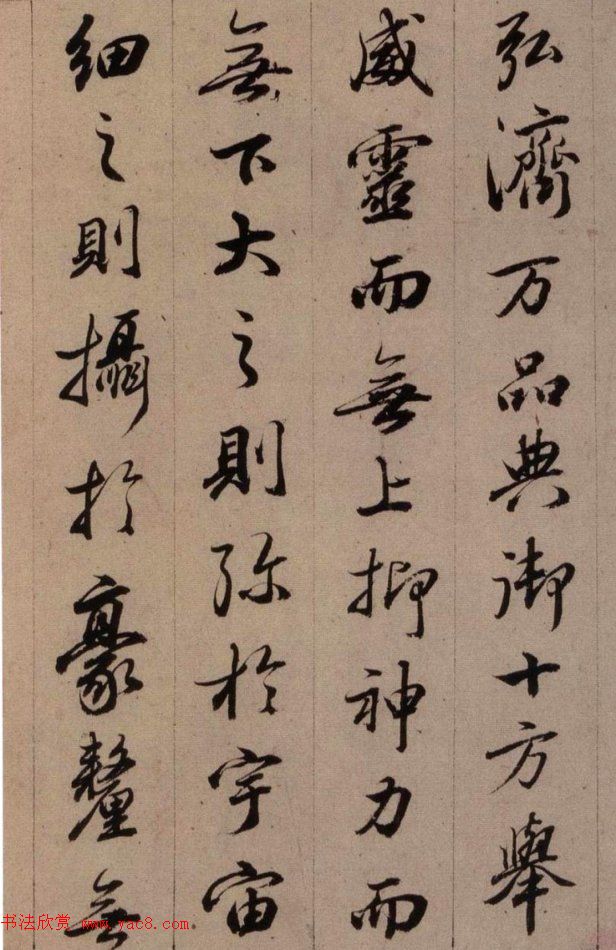 弘濟万品典御十方舉
威靈而無上抑神力而
無下大之則弥於宇宙
細之則攝於豪釐無
书法欣赏 www.yac8.com